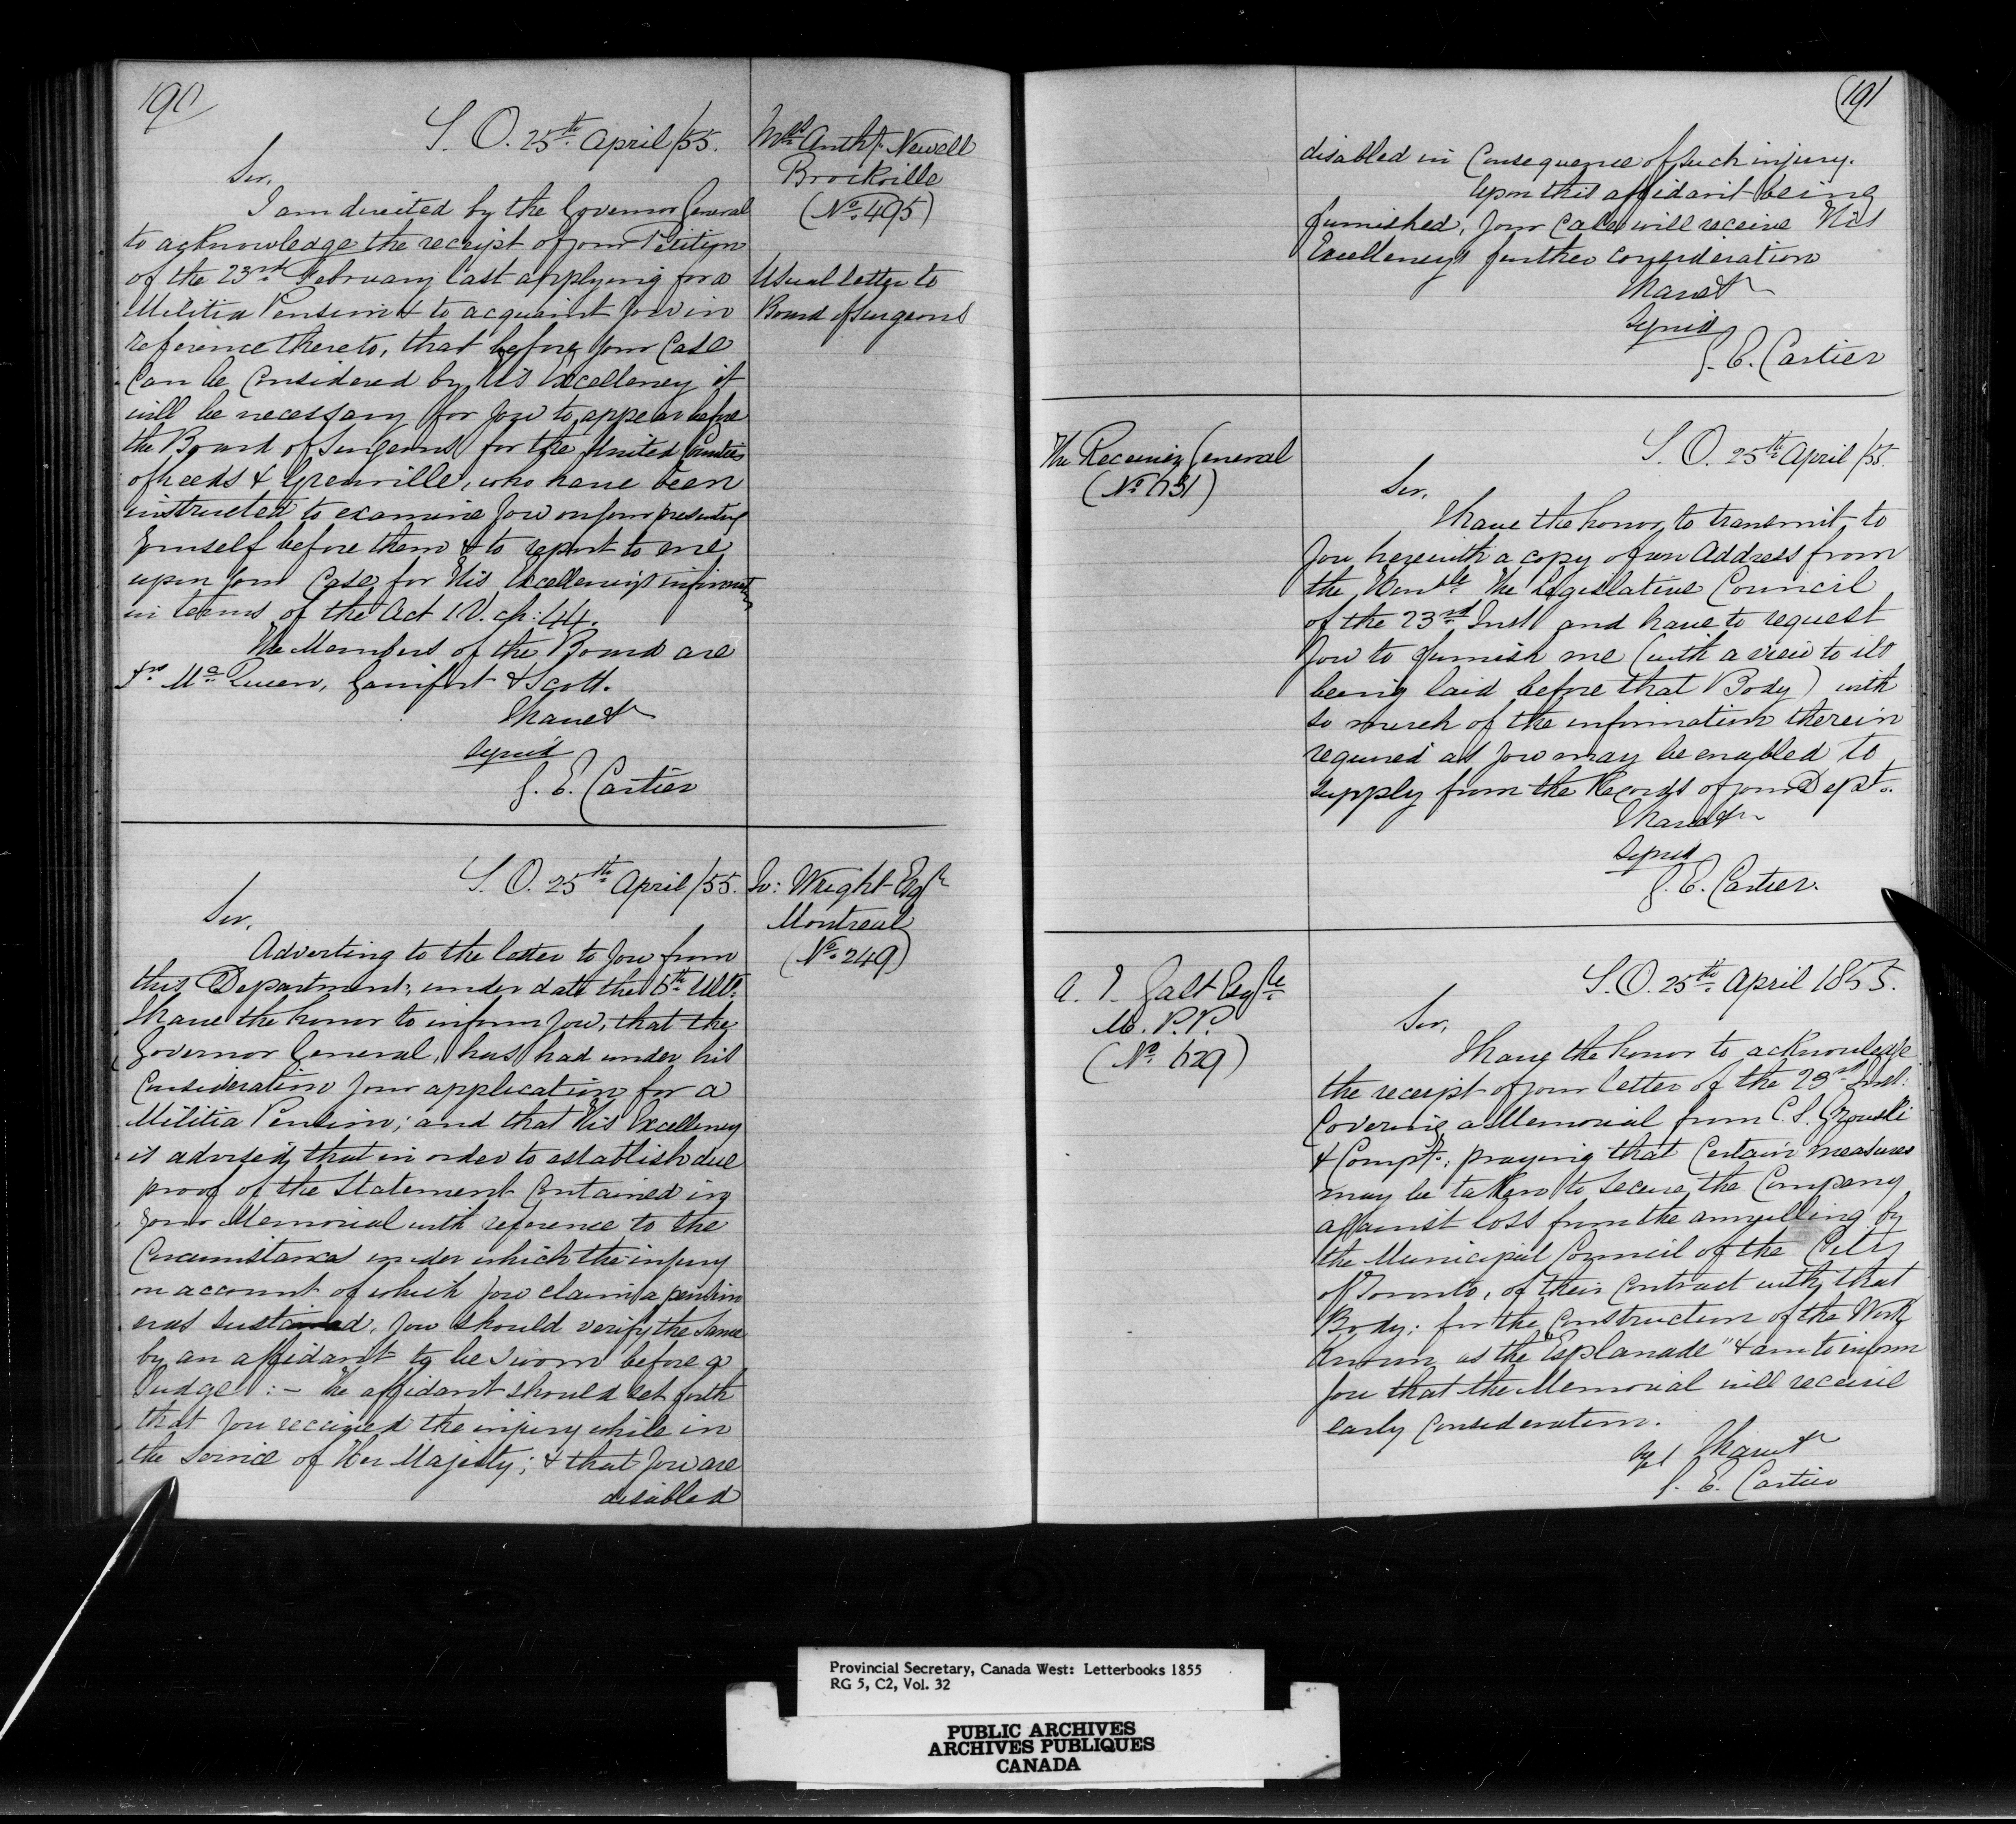 190
S. O. 25th April /55.
Mr Anthy Newell
Brockville
(No 495)
Usual letter to
Board of Surgeons
Sir,
I am directed by the Governor General
to acknowledge the receipt of your Petition
of the 23rd February last applying for a
Militia Pension & to acquaint you in
reference thereto, that before your Case
Can be Considered by His Excellency it
will be necessary for you to appear before
the Board of Surgeons for the United Counties
of Leeds & Grenville, who have been
instructed to examine you on your presenting
yourself before them & to report to me
upon your Case for His Excellency's information
in terms of the Act 1 V. ch: 44.
The Members of the Board are
Mc Queen, & Scott.
I have &c
signed
G. E. Cartier
S. O. 25th April /55.
Wright Esqre
Montreal
(No 249)
Sir,
Adverting to the letter to you from
this Department, under date the 6th Ulto:
I have the honor to inform you, that the
Governor General, has had under his
Consideration your application for a
Militia Pension; and that His Excellency
is advised, that in order to establish due
proof of the Statement Contained in
your Memorial with reference to the
Circumstances under which the injury
on account of which you claim a pension
was sustained, you should verify the same
by an affidavit to be Sworn before a
Judge: - The affidavit should set forth
that you received the injury while in
the Service of Her Majesty; & that you are
disabled
191
disabled in Consequence of such injury.
Upon this affidavit being
furnished, your Case will receive His
Excellency's further consideration
I have &c
signed
G. E. Cartier
The Receiver General
(No 631)
S. O. 25th April /55.
Sir,
I have the honor to transmit to
you herewith a copy of an Address from
the Honble The Legislative Council
of the 23rd Inst and have to request
you to furnish me (with a view to its
being laid before that Body) with
so much of the information therein
required as you may be enabled to
supply from the Records of your Dept.
I have &c
signed
G. E. Cartier.
A. T. Galt Esqre
M. P. P.
(No 629)
S. O. 25th April 1855.
Sir,
I have the honor to acknowledge
the receipt of your letter of the 23rd Inst:
Covering a Memorial from C. S. Gzowski
& Compy.; praying that Certain measures
may be taken to secure the Company
against loss from the annulling by
the Municipal Council of the City
of Toronto, of their Contract with that
Body: for the Construction of the Work
known as the "Esplanade" & am to inform
you that the Memorial will receive
early Consideration.
I have &c
G. E. Cartier
Provincial Secretary, Canada West: Letterbooks 1855
RG 5, C2, Vol. 32
PUBLIC ARCHIVES
ARCHIVES PUBLIQUES
CANADA